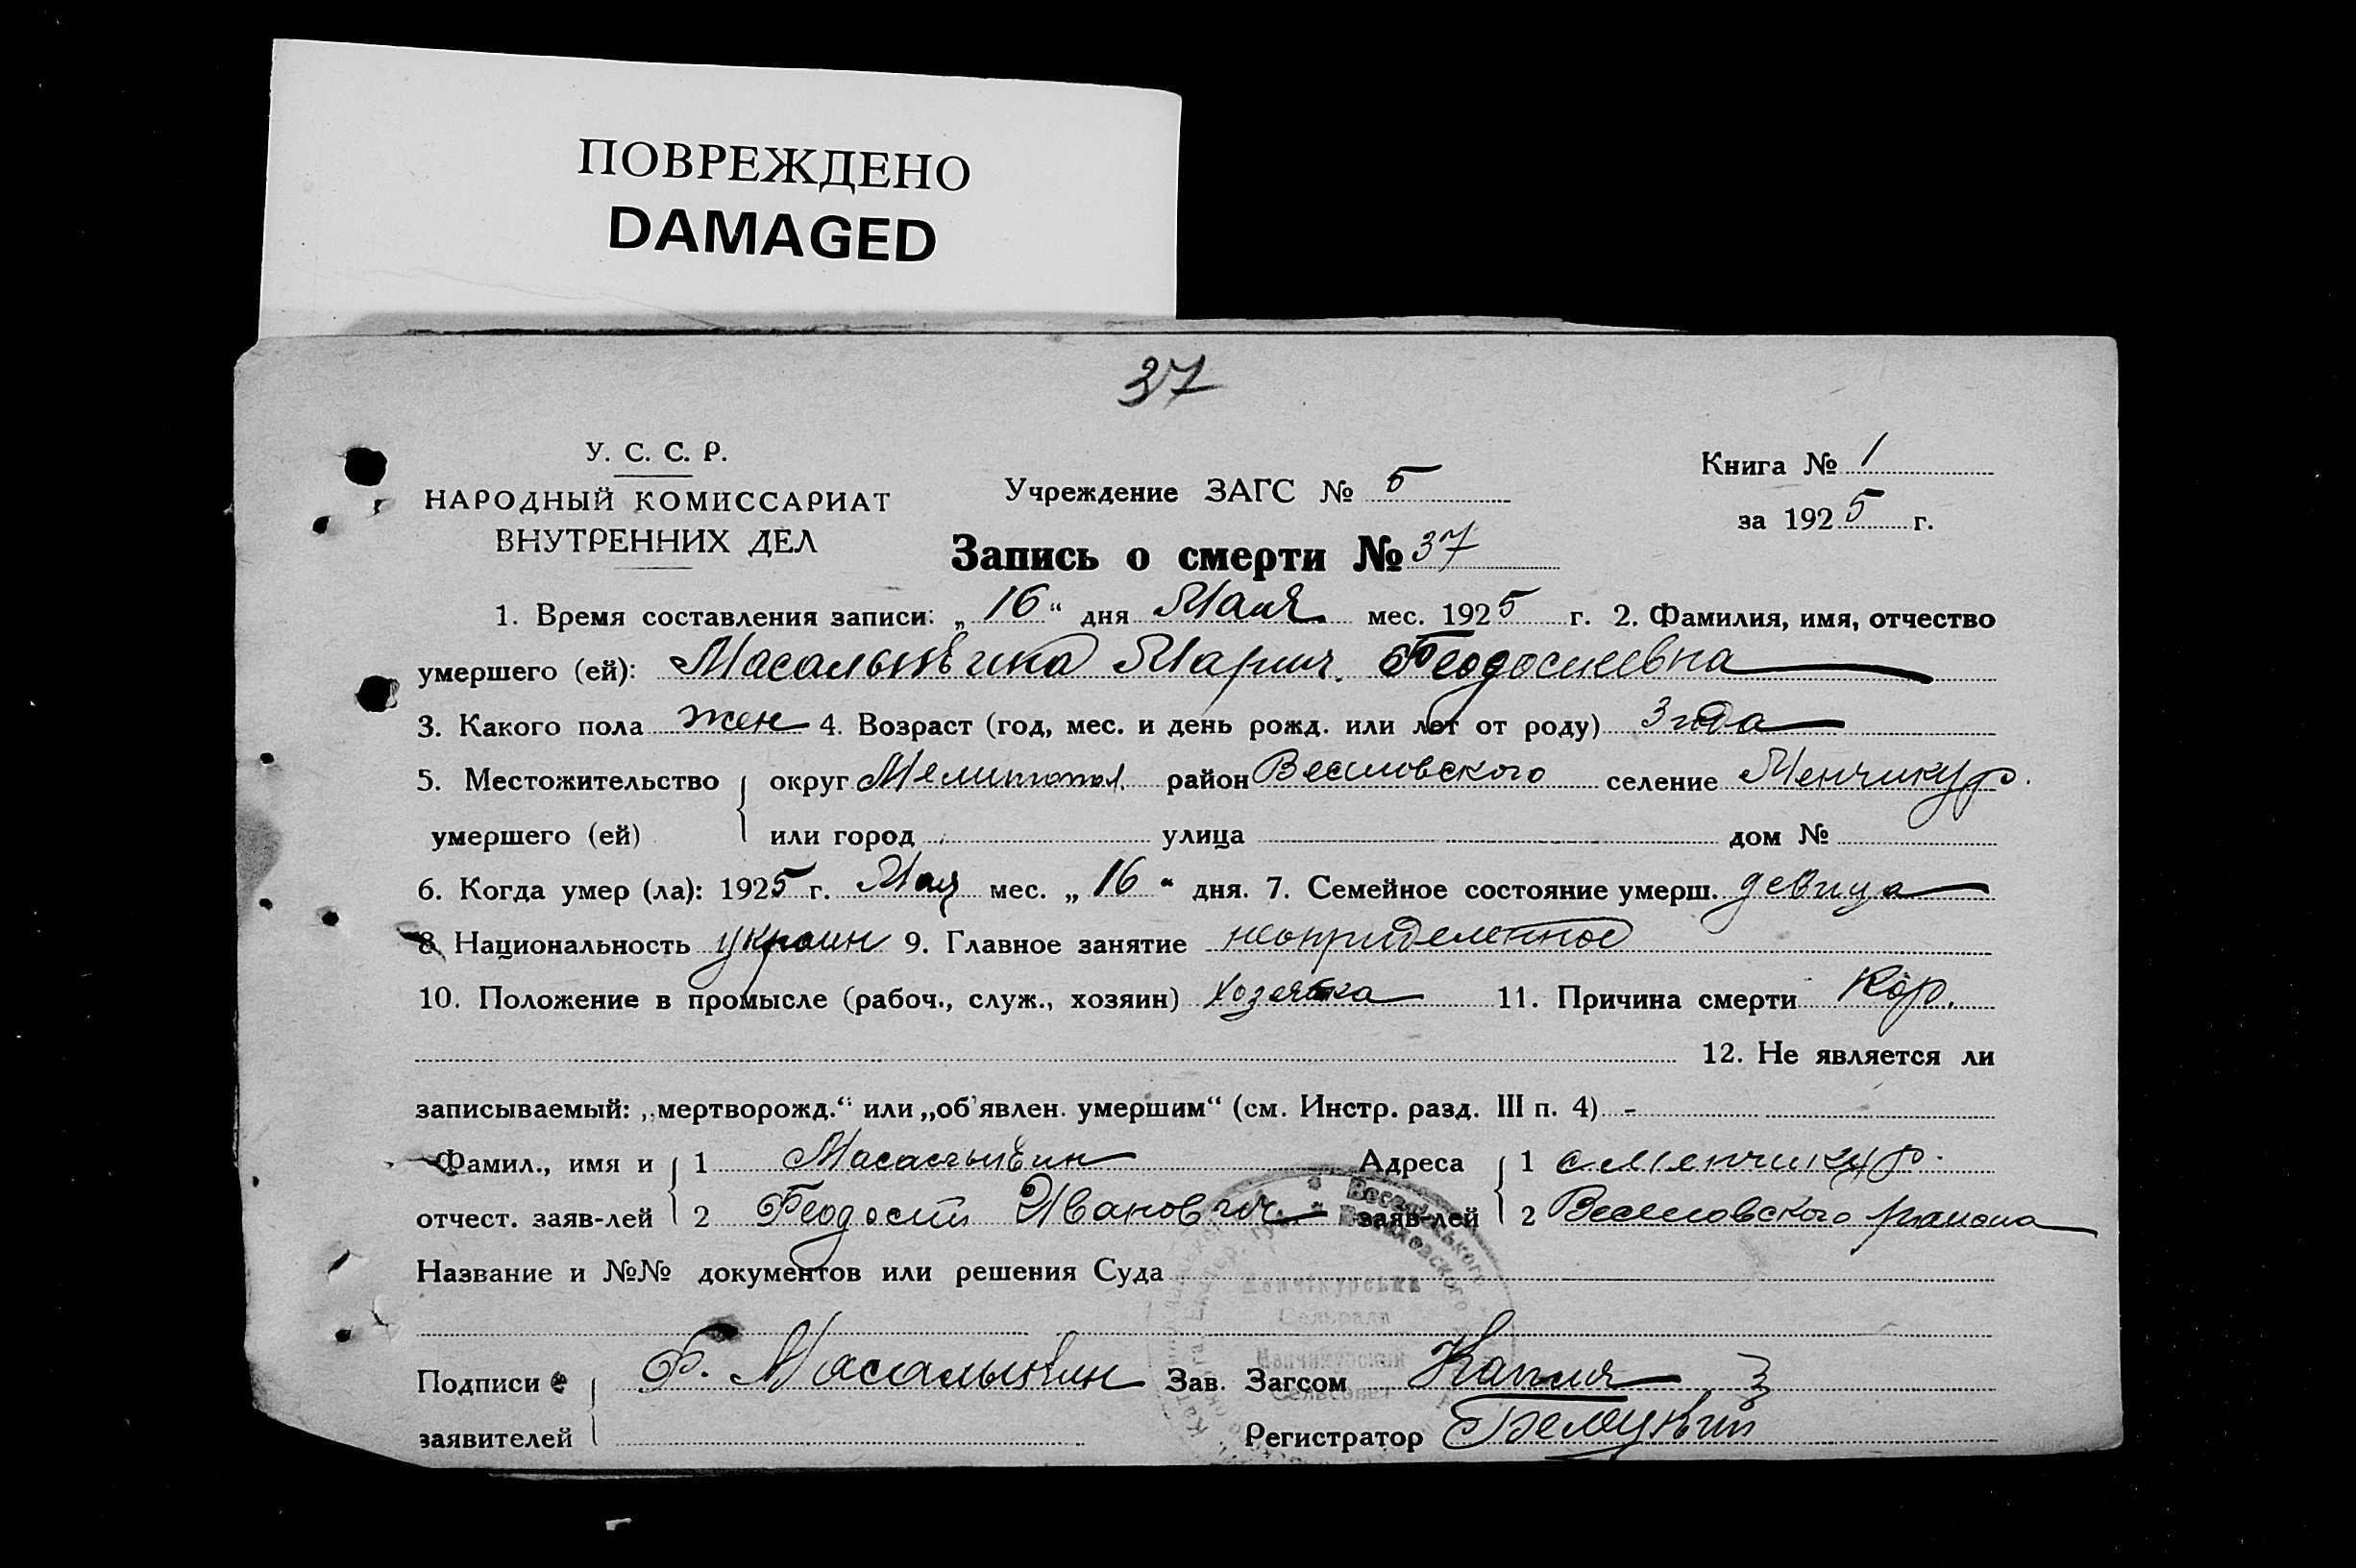 ПОВРЕЖДЕНО
DAMAGED
37
У. С. С. Р.
НАРОДНЫЙ КОМИССАРИАТ
ВНУТРЕННИХ ДЕЛ
Учреждение ЗАГС № 5
Книга № 1
за 1925 г.
Запись о смерти № 37
1. Время составления записи: „16“ дня Мая мес. 1925 г. 2. Фамилия, имя, отчество
умершего (ей): Мария Феодосиевна
3. Какого пола жен 4. Возраст (год, мес. и день рожд. или лет от роду) 3 года
5. Местожительство округ Мелитопол. район Веселовского селение Менчикур.
умершего (ей) или город улица дом №
6. Когда умер (ла): 1925 г. Мая мес. „16“ дня. 7. Семейное состояние умерш. девица
8. Национальность украин 9. Главное занятие неоприделенное
10. Положение в промысле (рабоч., служ., хозяин) 11. Причина смерти Кор.
12. Не является ли
записываемый: „мертворожд.“ или „об'явлен. умершим“ (см. Инстр. разд. III п. 4) -
Фамил., имя и 1 Масалыкин Адреса 1 с. Менчикур.
отчест. заяв-лей 2 Феодосий Иванович заяв-лей 2 Веселовского района
Название и №№ документов или решения Суда
Менчікурська
Сельрада
Менчикурский
Сельсовет
Подписи Ф. Масалыкин Зав. Загсом Капля
заявителей Регистратор